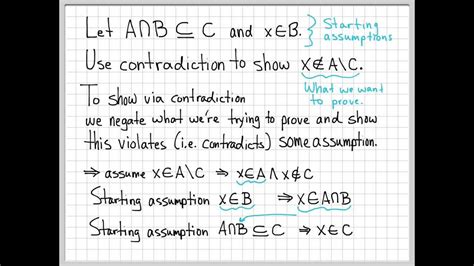 Let A∩B ⊆ C and x∈B. } Starting assumptions
Use contradiction to show x∉A\C.
What we want to prove.
To show via contradiction
we negate what we're trying to prove and show
this violates (i.e. contradicts) some assumption.
⇒ assume x∈A\C ⇒ x∈A ∧ x∉C
Starting assumption x∈B ⇒ x∈A∩B
Starting assumption A∩B ⊆ C ⇒ x∈C